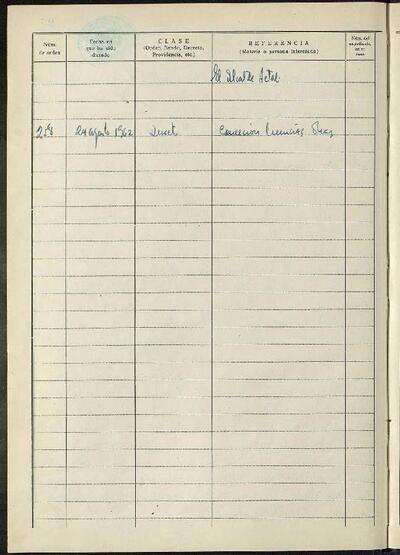 Núm. de orden
Fecha en que ha sido dictado
CLASE
(Orden, Bando, Decreto, Providencia, etc.)
REFERENCIA
(Materia o persona interesada)
Núm. del expediente, en su caso
El Alcalde Actal.
24 agosto 1962 Decreto Concesión licencias